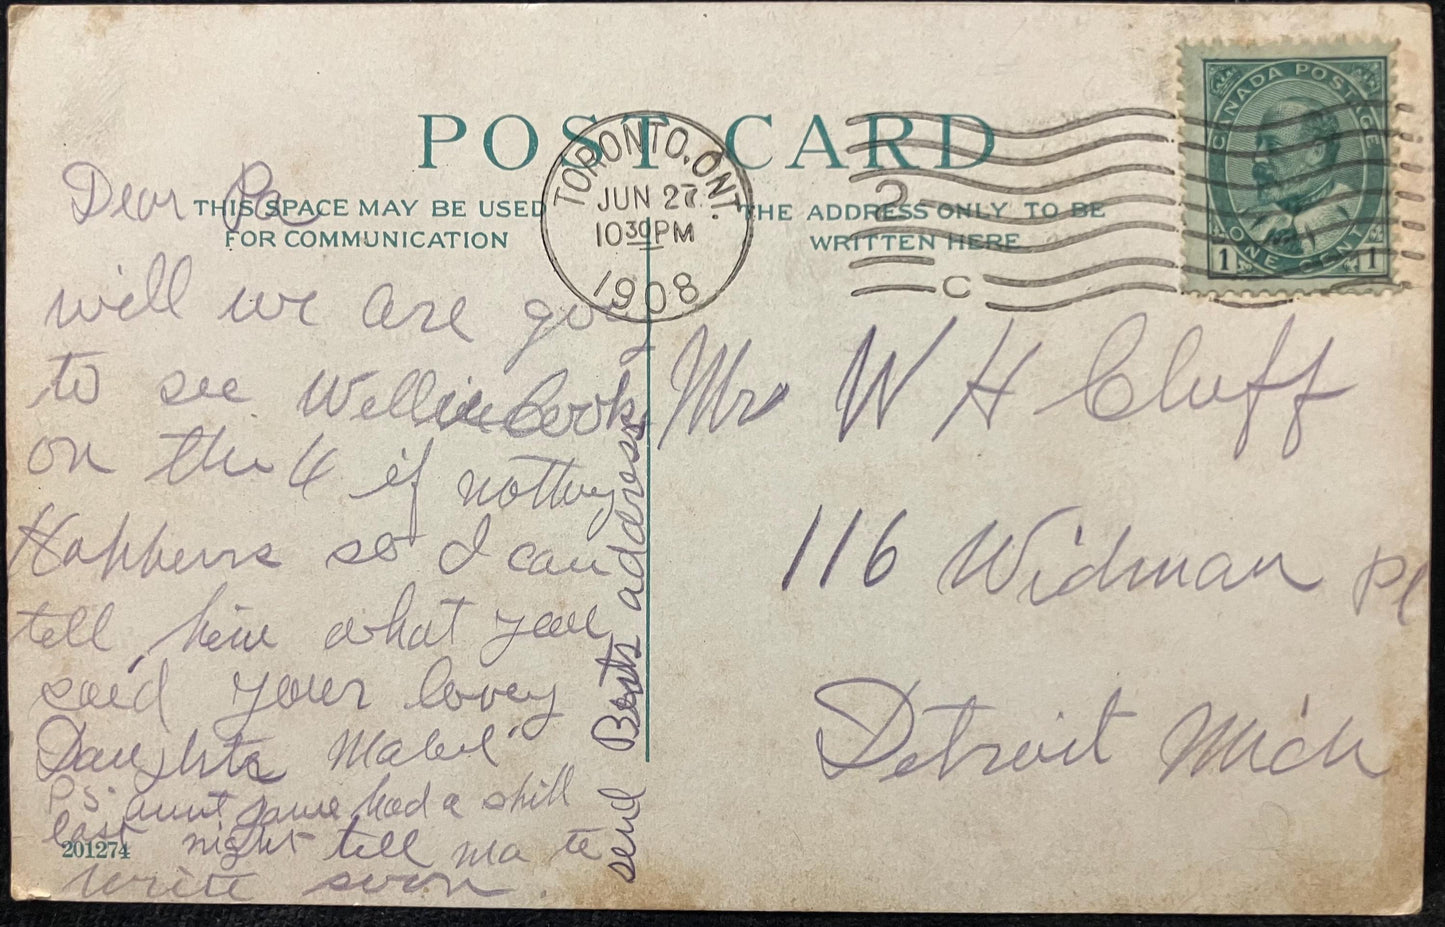 POST CARD
THIS SPACE MAY BE USED
FOR COMMUNICATION
THE ADDRESS ONLY TO BE
WRITTEN HERE
TORONTO, ONT.
JUN 27
10 30 PM
1908
2
C
CANADA POSTAGE
1 ONE CENT 1
Dear Pa
will we are go
to see Willie Cook
on the 4 if nothing
Happens so I can
tell him what you
said your lovey
Daughter Mabel
P.S. aunt had a spill
last night tell ma to
write soon.
send Berts address
201274
Mr W H Cluff
116 Widman Pl
Detroit Mich